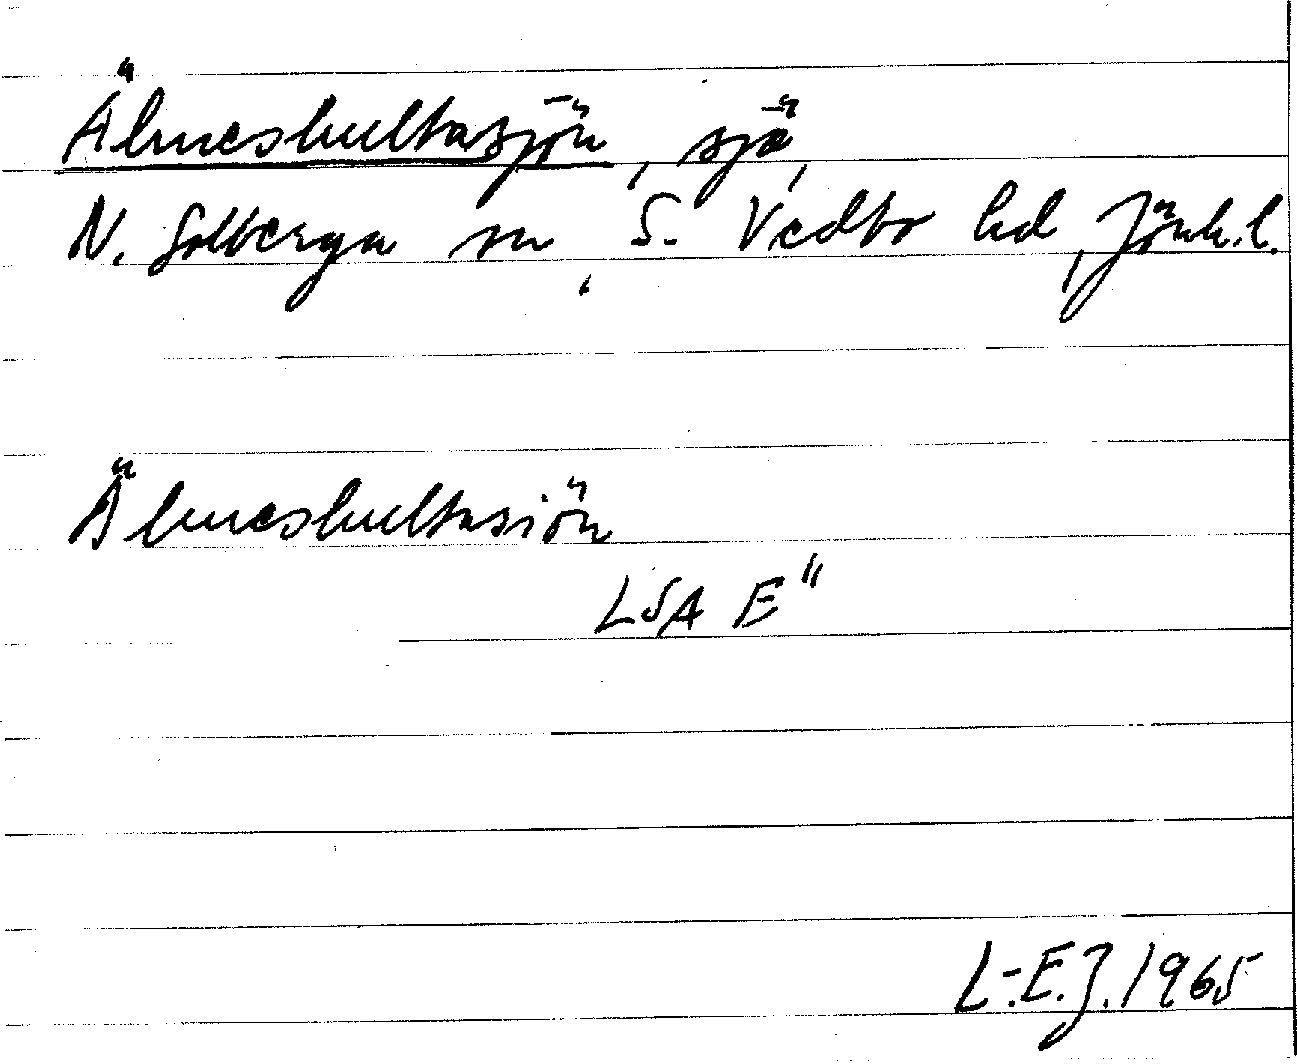 Älmeshultasjön, sjö,
N. Solberga sn, S. Vedbo hd, Jönk. l.
Älmeshultasiön
LSA E"
L.-E. J. 1965